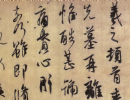 羲之頓首
先墓再離
惟酷甚號
痛貫心肝
奈何雖即